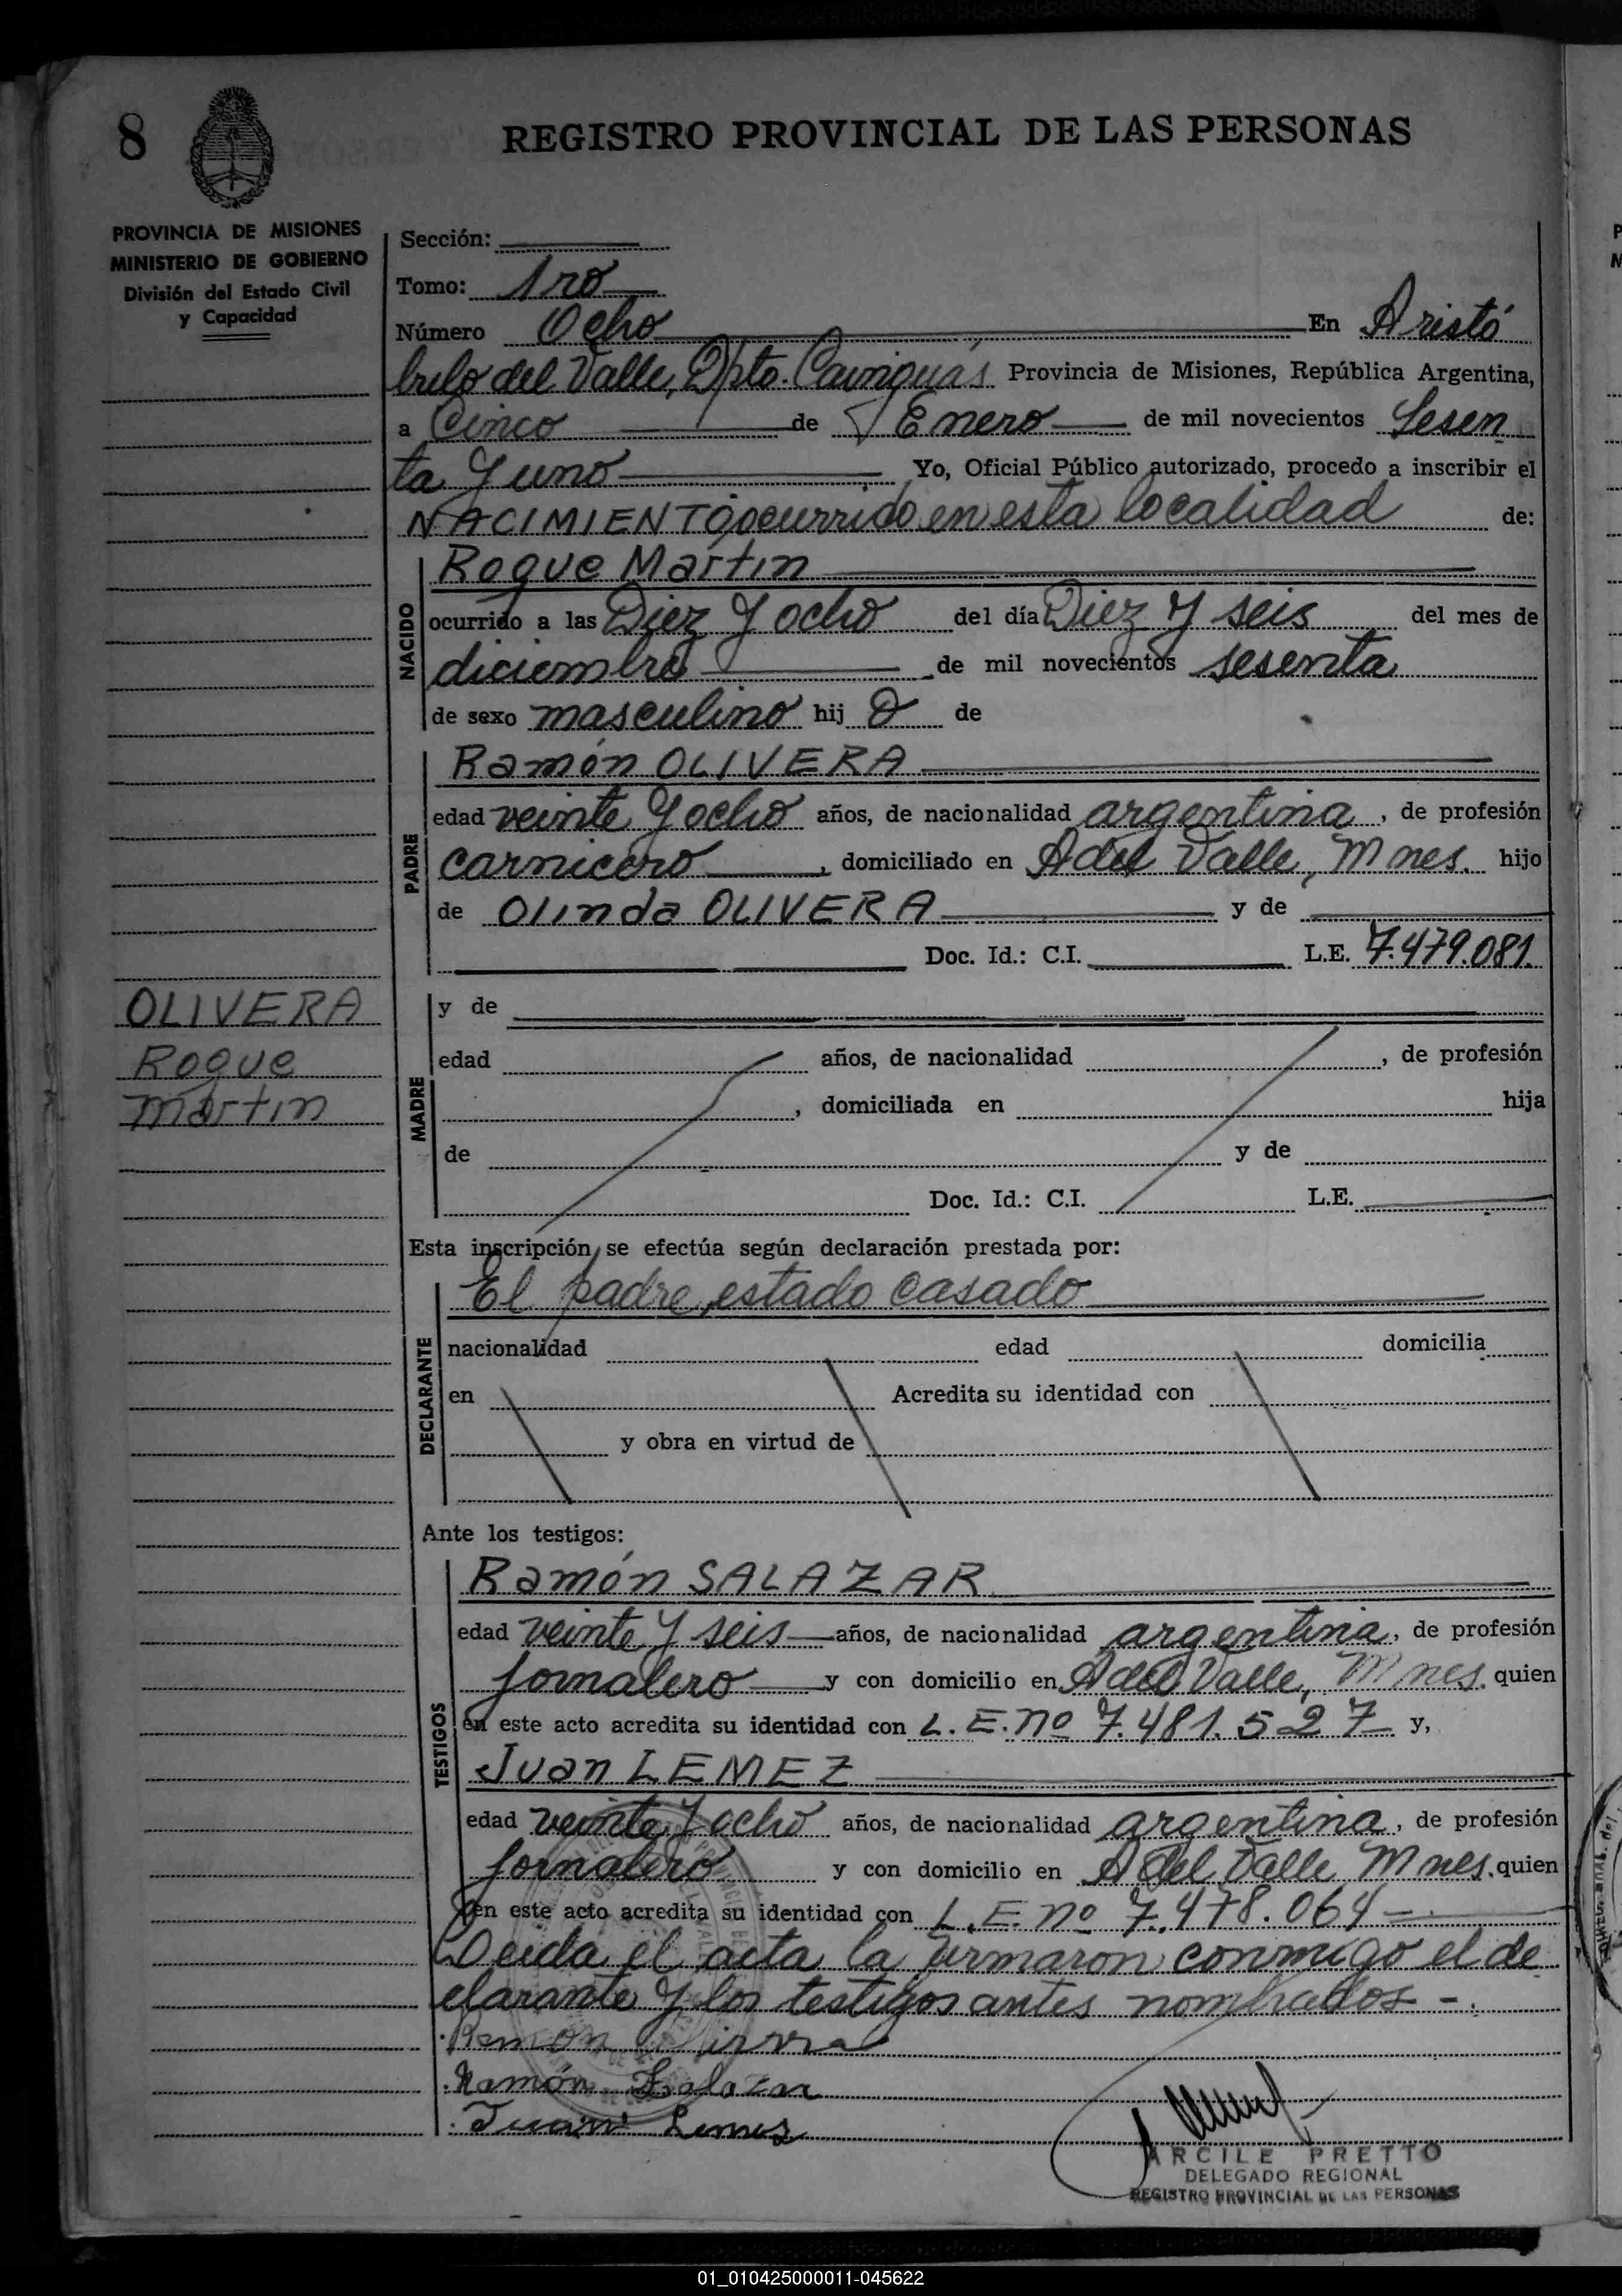 8
REGISTRO PROVINCIAL DE LAS PERSONAS
PROVINCIA DE MISIONES
MINISTERIO DE GOBIERNO
División del Estado Civil
y Capacidad
Sección:
Tomo: 1ro
Número Ocho En Aristó
bulo del Valle, Dpto. Cainguás Provincia de Misiones, República Argentina,
a Cinco de Enero de mil novecientos Sesen
ta y uno Yo, Oficial Público autorizado, procedo a inscribir el
NACIMIENTO ocurrido en esta localidad de:
NACIDO
Roque Martin
ocurrido a las Diez y ocho del día Diez y seis del mes de
diciembre de mil novecientos sesenta
de sexo masculino hij o de
PADRE
Ramón OLIVERA
edad veinte y ocho años, de nacionalidad argentina, de profesión
carnicero, domiciliado en A del Valle, Mnes. hijo
de Olinda OLIVERA y de
Doc. Id.: C.I. L.E. 7.479.081.
OLIVERA
Roque
Martin
MADRE
y de
edad años, de nacionalidad , de profesión
, domiciliada en hija
de y de
Doc. Id.: C.I. L.E.
Esta inscripción se efectúa según declaración prestada por:
DECLARANTE
El padre, estado casado
nacionalidad edad domicilia
en Acredita su identidad con
y obra en virtud de
Ante los testigos:
TESTIGOS
Ramón SALAZAR
edad veinte y seis años, de nacionalidad argentina, de profesión
jornalero y con domicilio en A del Valle, Mnes. quien
en este acto acredita su identidad con L.E. nº 7.481.527 y,
Juan LEMEZ
edad veinte y ocho años, de nacionalidad argentina, de profesión
jornalero y con domicilio en A del Valle Mnes. quien
en este acto acredita su identidad con L.E. nº 7.478.064
Leida el acta la firmaron conmigo el de
clarante y los testigos antes nombrados -.
Ramón
Ramón Salazar
Juan Lemes
ARCILE PRETTO
DELEGADO REGIONAL
REGISTRO PROVINCIAL DE LAS PERSONAS
01_010425000011-045622